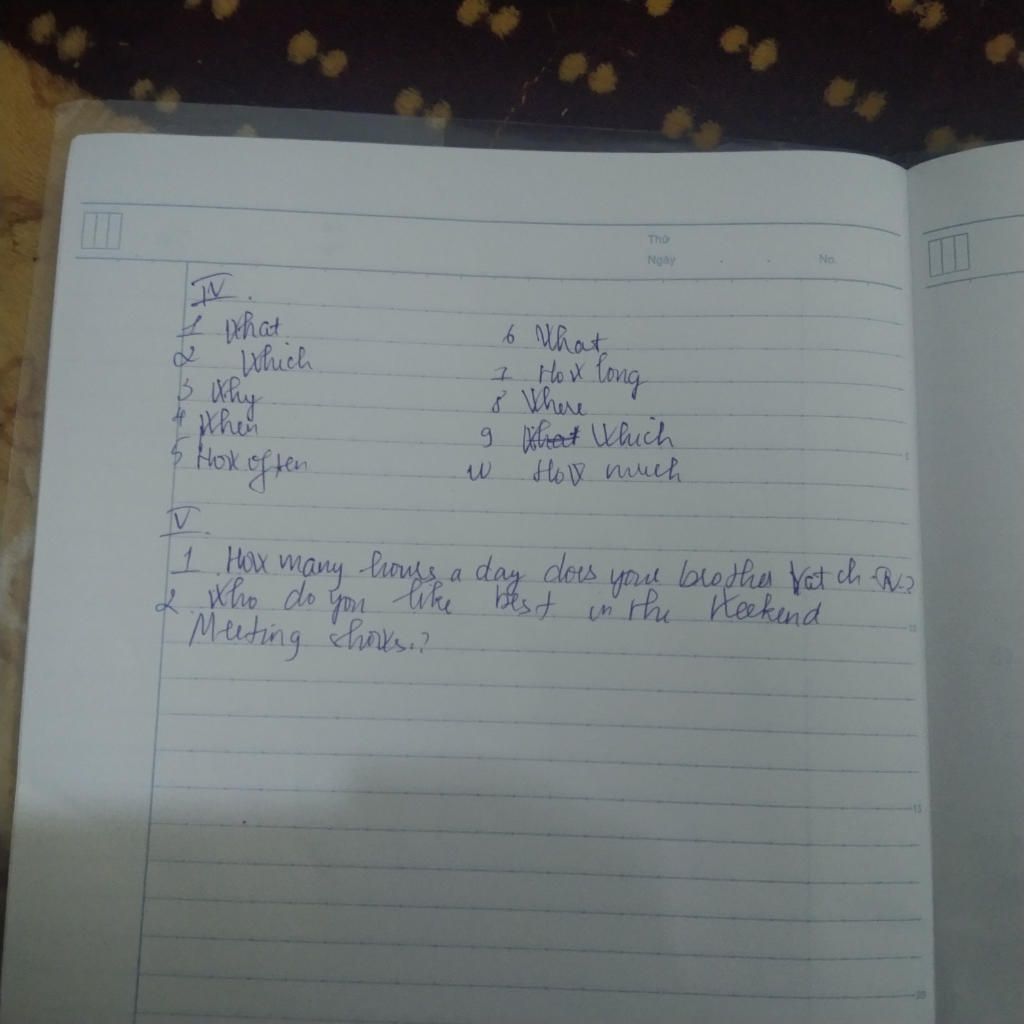 Thứ
Ngày . . No.
IV.
1 What
2 Which
3 Why
4 When
5 How often
6 What
7 How long
8 Where
9 What Which
10 How much
V.
1 How many hours a day does your brother watch TV?
2. Who do you like best in the Weekend
Meeting shows.?
5
10
15
20